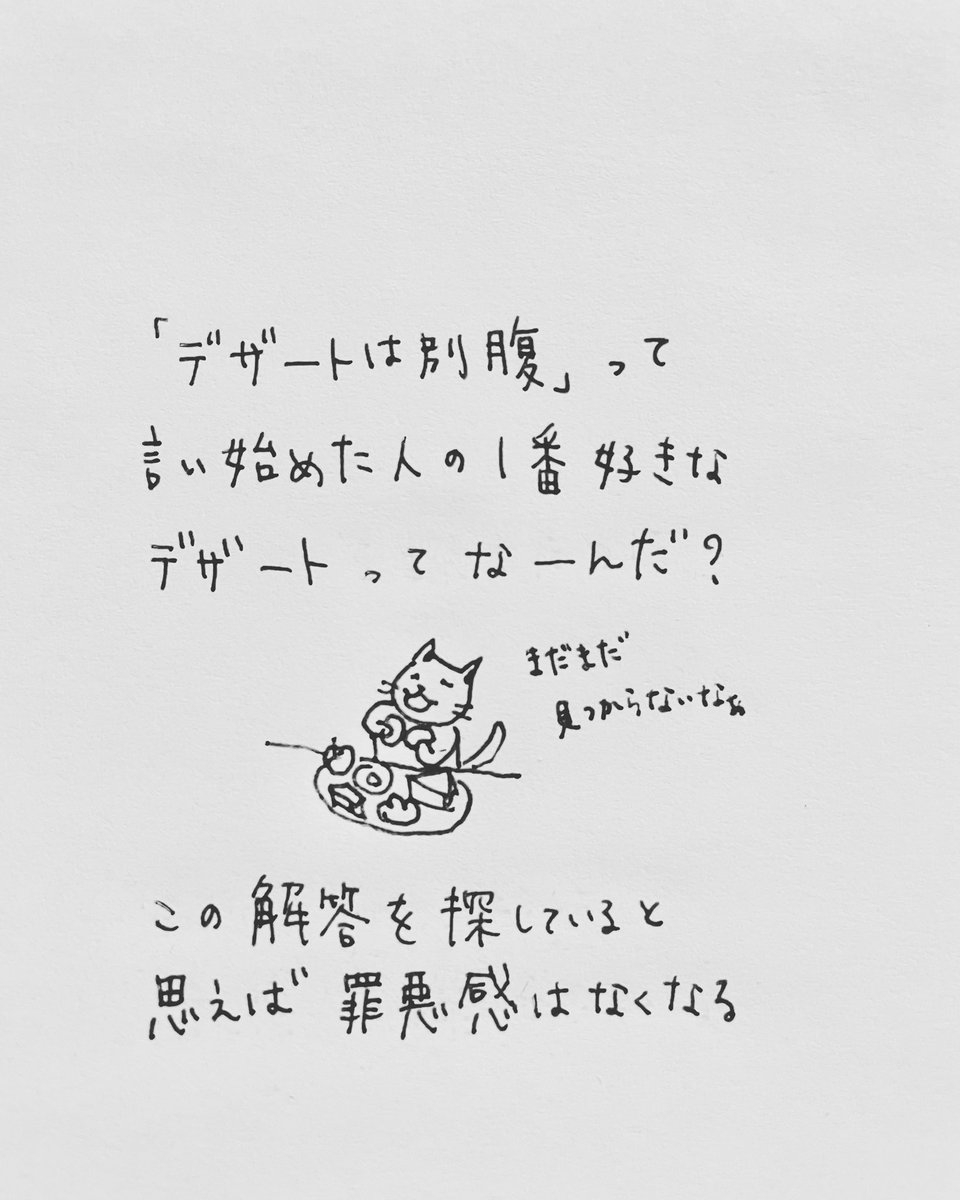 「デザートは別腹」って
言い始めた人の1番好きな
デザートってなーんだ？
まだまだ
見つからないなぁ
この解答を探していると
思えば罪悪感はなくなる